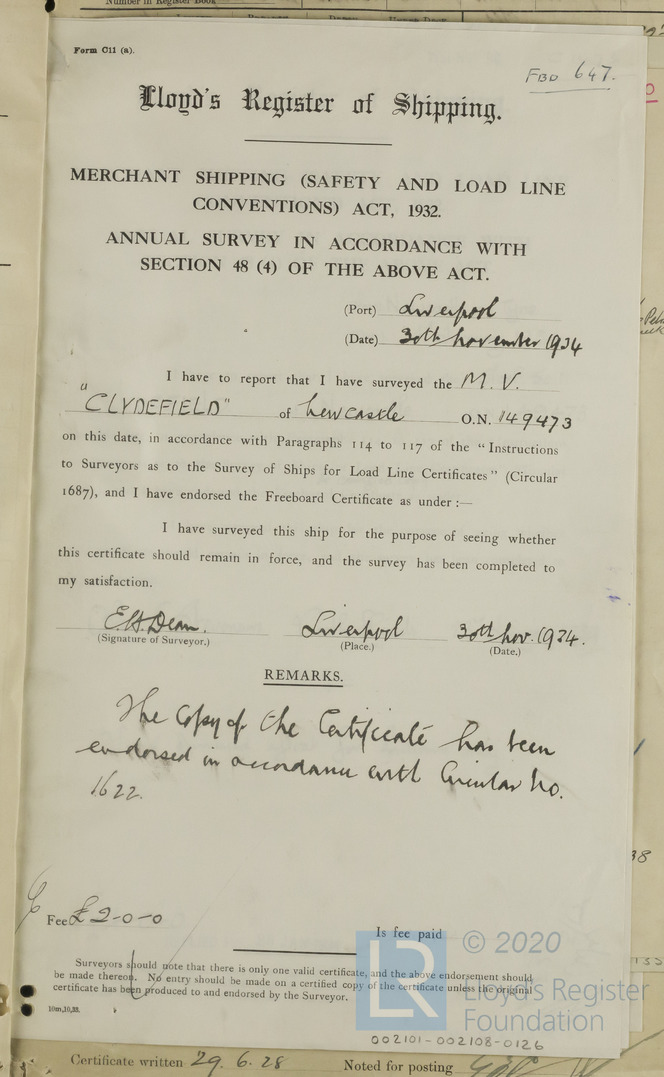 Number in Register Book
Form C11 (a).
FBD 647.
Lloyd's Register of Shipping.
MERCHANT SHIPPING (SAFETY AND LOAD LINE
CONVENTIONS) ACT, 1932.
ANNUAL SURVEY IN ACCORDANCE WITH
SECTION 48 (4) OF THE ABOVE ACT.
(Port) Liverpool
(Date) 30th November 1934
I have to report that I have surveyed the M.V.
"CLYDEFIELD" of Newcastle O.N. 149473
on this date, in accordance with Paragraphs 114 to 117 of the "Instructions
to Surveyors as to the Survey of Ships for Load Line Certificates" (Circular
1687), and I have endorsed the Freeboard Certificate as under :—
I have surveyed this ship for the purpose of seeing whether
this certificate should remain in force, and the survey has been completed to
my satisfaction.
E.H. Dean. Liverpool 30th Nov. 1934.
(Signature of Surveyor.) (Place.) (Date.)
REMARKS.
The Copy of the Certificate has been
endorsed in accordance with Circular No.
1622.
Fee £2-0-0
Is fee paid
Surveyors should note that there is only one valid certificate, and the above endorsement should
be made thereon. No entry should be made on a certified copy of the certificate unless the original
certificate has been produced to and endorsed by the Surveyor.
10m,10,33.
LR © 2020
Lloyd's Register
Foundation
002101-002108-0126
38
Certificate written 29.6.28 Noted for posting